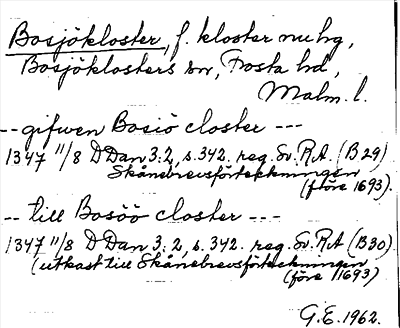 Bosjökloster, f. kloster nu hg,
Bosjöklosters sn, Frosta hd,
Malm. l.
-- gifwen Bosiö closter ---
1347 11/8 DDan 3:2, s. 342. reg. Sv. R.A. (B 29)
Skånebrevsförteckningen
(före 1693).
-- till Bosöö closter ---
1347 11/8 DDan 3:2, s. 342. reg. Sv. R.A (B 30).
(utkast till Skånebrevsförteckningen
(före 1693)
G.E. 1962.